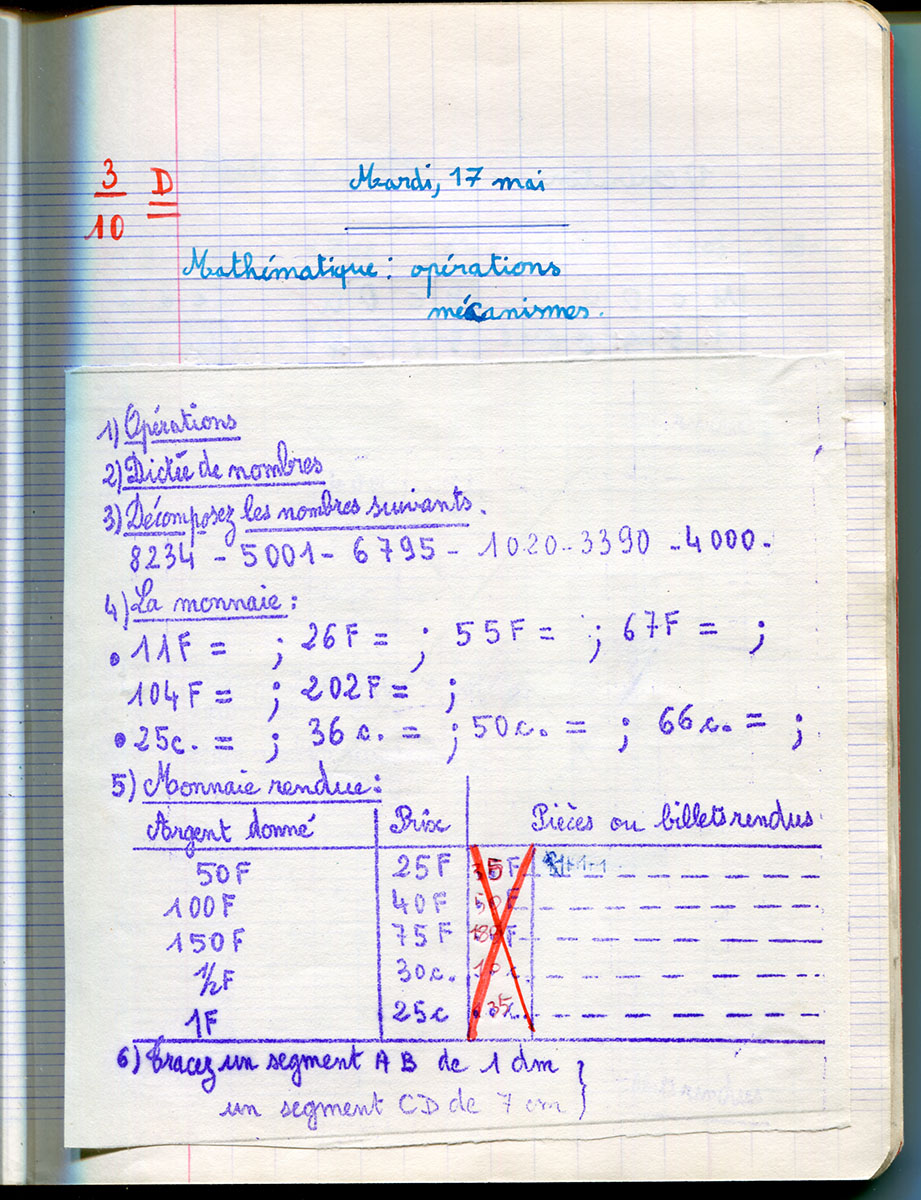 3 D
10
Mardi, 17 mai
Mathématique : opérations
mécanismes.
1) Opérations
2) Dictée de nombres
3) Décomposez les nombres suivants.
8234 - 5001 - 6795 - 1020 - 3390 - 4000.
4) La monnaie :
• 11F = ; 26F = ; 55F = ; 67F = ;
104F = ; 202F = ;
• 25c. = ; 36c. = ; 50c. = ; 66c. = ;
5) Monnaie rendue :
Argent donné Prix Pièces ou billets rendus
50F 25F 35F
100F 40F 50F
150F 75F 180F
1/2F 30c. 10c.
1F 25c 35c.
6) Tracez un segment AB de 1 dm }
un segment CD de 7 cm